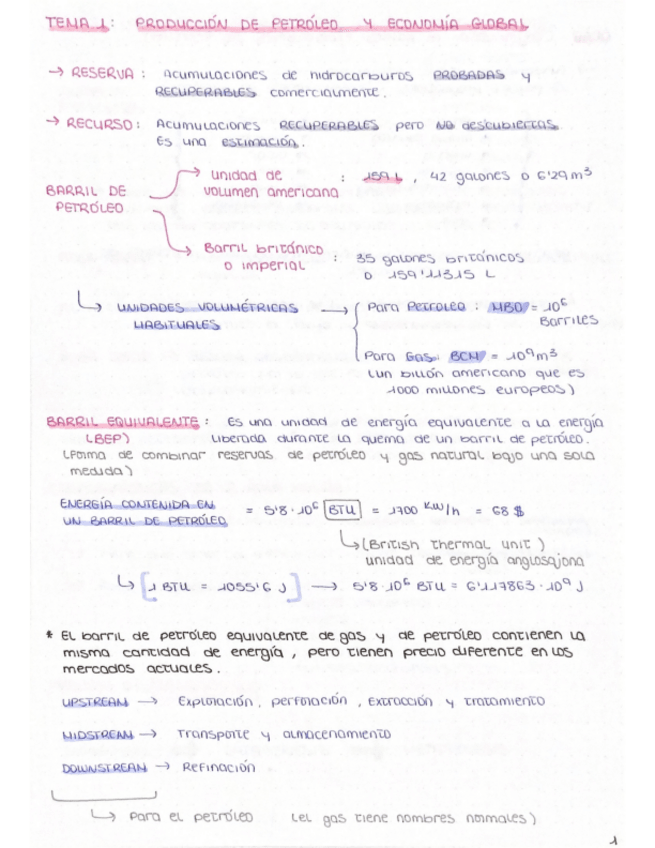 TEMA 1: PRODUCCIÓN DE PETRÓLEO Y ECONOMÍA GLOBAL
→ RESERVA: Acumulaciones de hidrocarburos PROBADAS y
RECUPERABLES comercialmente.
→ RECURSO: Acumulaciones RECUPERABLES pero NO descubiertas.
Es una estimación.
BARRIL DE PETRÓLEO
→ unidad de volumen americana : 159 L, 42 galones o 6'29 m³
→ Barril británico o imperial : 35 galones británicos
o 159'11315 L
↳ UNIDADES VOLUMÉTRICAS HABITUALES → Para Petroleo: MBO = 10⁶
Barriles
Para Gas: BCM = 10⁹ m³
(un billón americano que es
1000 millones europeos)
BARRIL EQUIVALENTE: Es una unidad de energía equivalente a la energía
(BEP) liberada durante la quema de un barril de petróleo.
(Forma de combinar reservas de petróleo y gas natural bajo una sola
medida)
ENERGÍA CONTENIDA EN
UN BARRIL DE PETRÓLEO = 5'8·10⁶ BTU = 1700 KW/h = 68 $
↳ (British thermal unit)
unidad de energía anglosajona
↳ [1 BTU = 1055'6 J] → 5'8·10⁶ BTU = 6'117863·10⁹ J
* El barril de petróleo equivalente de gas y de petróleo contienen la
misma cantidad de energía, pero tienen precio diferente en los
mercados actuales.
UPSTREAM → Exploración, perforación, Extracción y tratamiento
MIDSTREAM → Transporte y almacenamiento
DOWNSTREAM → Refinación
↳ Para el petróleo (el gas tiene nombres normales)
1